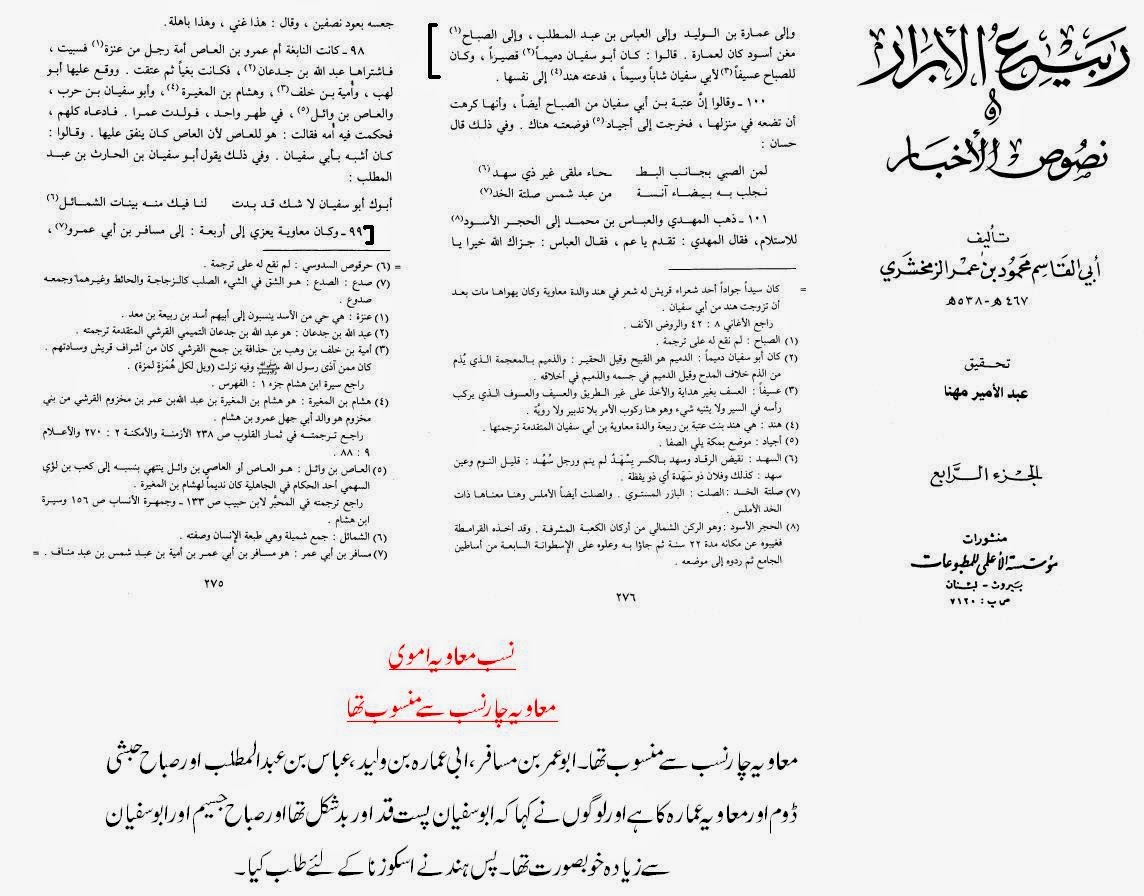 ربيع الأبرار
و
نصوص الأخبار
تأليف
أبي القاسم محمود بن عمر الزمخشري
٤٦٧ هـ - ٥٣٨ هـ
تحقيق
عبد الأمير مهنا
الجزء الرابع
منشورات
مؤسسة الأعلمي للمطبوعات
بيروت - لبنان
ص ب : ٧١٢٠
جعسه بعود نصفين ، وقال : هذا غني ، وهذا باهلة .
٩٨ ـ كانت النابغة أم عمرو بن العاص أمة رجل من عنزة(١) فسبيت ،
فاشتراها عبد الله بن جدعان(٢) ، فكانت بغياً ثم عتقت . ووقع عليها أبو
لهب ، وأمية بن خلف(٣) ، وهشام بن المغيرة(٤) ، وأبو سفيان بن حرب ،
والعاص بن وائل(٥) ، في طهر واحد ، فولدت عمرا . فادعاه كلهم ،
فحكمت فيه أمه فقالت : هو للعاص لأن العاص كان ينفق عليها . وقالوا :
كان أشبه بأبي سفيان . وفي ذلك يقول أبو سفيان بن الحارث بن عبد
المطلب :
أبوك أبو سفيان لا شك قد بدت لنا فيك منه بينات الشمائل(٦)
٩٩ ـ وكان معاوية يعزي إلى أربعة : إلى مسافر بن أبي عمرو(٧) ،
= (٦) حرقوص السدوسي : لم نقع له على ترجمة .
(٧) صدع : الصدع : هو الشق في الشيء الصلب كالزجاجة والحائط وغيرهما وجمعه
صدوع .
(١) عنزة : هي حي من الأسد ينسبون إلى أبيهم أسد بن ربيعة بن معد .
(٢) عبد الله بن جدعان : هو عبد الله بن جدعان التميمي القرشي المتقدمة ترجمته .
(٣) أمية بن خلف بن وهب بن حذافة بن جمح القرشي كان من أشراف قريش وسادتهم .
كان ممن آذى رسول الله ﷺ وفيه نزلت (ويل لكل هُمَزةٍ لمزة) .
راجع سيرة ابن هشام جزء ١ : الفهرس .
(٤) هشام بن المغيرة : هو هشام بن المغيرة بن عبد الله بن عمر بن مخزوم القرشي من بني
مخزوم هو والد أبي جهل عمرو بن هشام .
راجع ترجمته في ثمار القلوب ص ٢٣٨ الأزمنة والأمكنة ٢ : ٢٧٠ والأعلام
٩ : ٨٨ .
(٥) العاص بن وائل : هو العاص أو العاصي بن وائل ينتهي بنسبه إلى كعب بن لؤي
السهمي أحد الحكام في الجاهلية كان نديماً لهشام بن المغيرة .
راجع ترجمته في المحبَّر لابن حبيب ص ١٣٣ ـ وجمهرة الأنساب ص ١٥٦ وسيرة
ابن هشام .
(٦) الشمائل : جمع شميلة وهي طبعة الإنسان وصفته .
(٧) مسافر بن أبي عمر : هو مسافر بن أبي عمر بن أمية بن عبد شمس بن عبد مناف . =
٢٧٥
وإلى عمارة بن الوليد وإلى العباس بن عبد المطلب ، وإلى الصباح(١)
مغن أسود كان لعمارة . قالوا : كان أبو سفيان دميماً(٢) قصيراً ، وكان
للصباح عسيفاً(٣) لأبي سفيان شاباً وسيماً ، فدعته هند(٤) إلى نفسها .
١٠٠ ـ وقالوا إنَّ عتبة بن أبي سفيان من الصباح أيضاً ، وأنها كرهت
أن تضعه في منزلها ، فخرجت إلى أجياد(٥) فوضعته هناك . وفي ذلك قال
حسان :
لمن الصبي بجانب البط ـحاء ملقى غير ذي سهد(٦)
نجلب به بيضاء آنسة من عبد شمس صلتة الخد(٧)
١٠١ ـ ذهب المهدي والعباس بن محمد إلى الحجر الأسود(٨)
للاستلام، فقال المهدي : تقدم يا عم ، فقال العباس : جزاك الله خيرا يا
= كان سيداً جواداً أحد شعراء قريش له شعر في هند والدة معاوية وكان يهواها مات بعد
أن تزوجت هند من أبي سفيان .
راجع الأغاني ٨ : ٤٢ والروض الآنف .
(١) الصباح : لم نقع له على ترجمة .
(٢) كان أبو سفيان دميماً : الدميم هو القبيح وقيل الحقير : والذميم بالمعجمة الذي يُذم
من الذم خلاف المدح وقيل الدميم في جسمه والذميم في أخلاقه .
(٣) عسيفاً : العسف بغير هداية والأخذ على غير الطريق والعسيف والعسوف الذي يركب
رأسه في السير ولا يثنيه شيء وهو هنا ركوب الأمر بلا تدبير ولا رويَّة .
(٤) هند : هي هند بنت عتبة بن ربيعة والدة معاوية بن أبي سفيان المتقدمة ترجمتها .
(٥) أجياد : موضع بمكة يلي الصفا .
(٦) السهد : نقيض الرقاد وسهد بالكسر يَسْهَدُ لم ينم ورجل سُهُد : قليل النوم وعين
سهد : كذلك وفلان ذو سَهَدة أي ذو يقظة .
(٧) صلتة الخد : الصلت : البازر المستوي . والصلت أيضاً الأملس وهنا معناها ذات
الخد الأملس .
(٨) الحجر الأسود : وهو الركن الشمالي من أركان الكعبة المشرفة . وقد أخذه القرامطة
فغيبوه عن مكانه مدة ٢٢ سنة ثم جاؤا به وعلوه على الإسطوانة السابعة من أساطين
الجامع ثم ردوه إلى موضعه .
٢٧٦
نسب معاویہ اموی
معاویہ چار نسب سے منسوب تھا
معاویہ چار نسب سے منسوب تھا۔ ابو عمر بن مسافر، ابی عمارہ بن ولید، عباس بن عبدالمطلب اور صباح حبشی
ڈوم اور معاویہ عمارہ کا ہے اور لوگوں نے کہا کہ ابوسفیان پست قد اور بد شکل تھا اور صباح جسیم اور ابوسفیان
سے زیادہ خوبصورت تھا۔ پس ہند نے اسکو زنا کے لئے طلب کیا۔